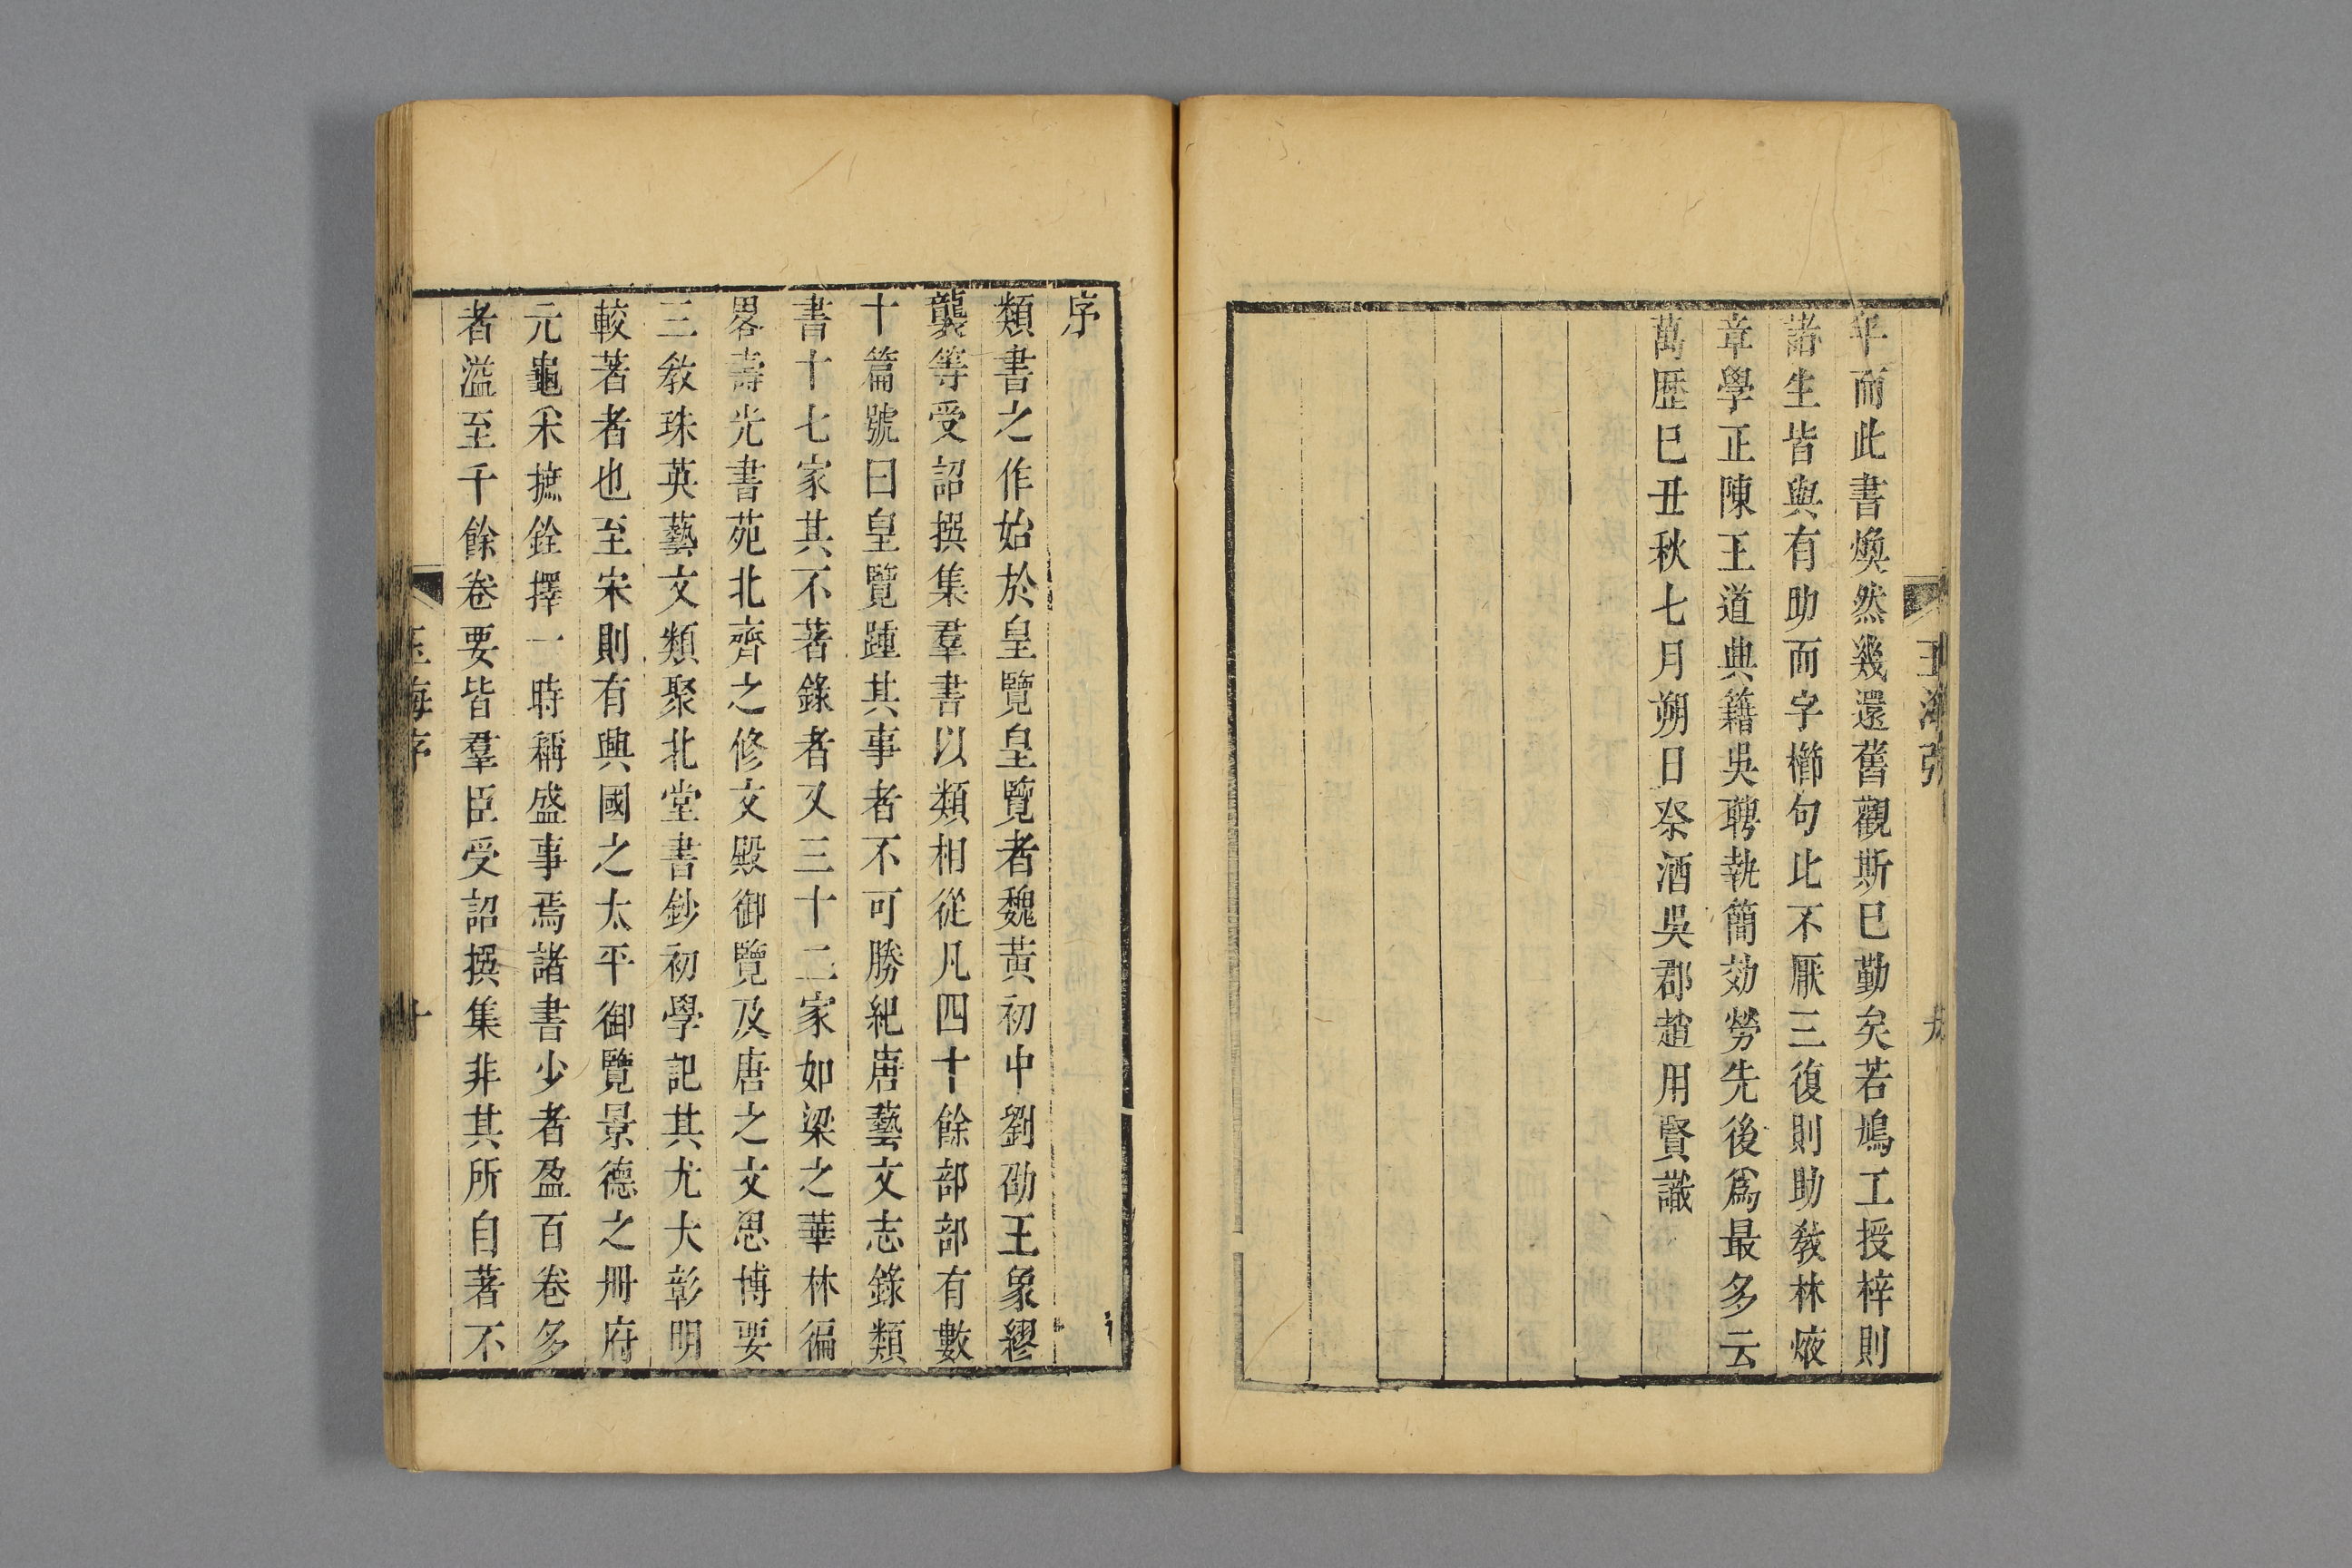 年而此書煥然幾還舊觀斯巳勤矣若鳩工授梓則
諸生皆與有助而字櫛句比不厭三復則助敎林烻
章學正陳王道典籍吳聘執簡効勞先後爲最多云
萬歷巳丑秋七月朔日祭酒吳郡趙用賢識
序
類書之作始於皇覽皇覽者魏黃初中劉劭王象繆
襲等受詔撰集羣書以類相從凡四十餘部部有數
十篇號曰皇覽踵其事者不可勝紀唐藝文志錄類
書十七家其不著錄者又三十二家如梁之華林徧
畧壽光書苑北齊之修文殿御覽及唐之文思博要
三敎珠英藝文類聚北堂書鈔初學記其尤大彰明
較著者也至宋則有興國之太平御覽景德之册府
元龜采摭銓擇一時稱盛事焉諸書少者盈百卷多
者溢至千餘卷要皆羣臣受詔撰集非其所自著不
玉海序